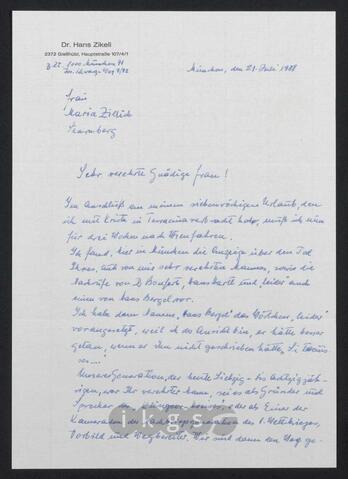 Dr. Hans Zikeli
2372 Gießhübl, Hauptstraße 107/4/1
z. Zt. 8000 München 71
München, den 21. Juli 1988
Frau
Maria Zillich
Starnberg
Sehr verehrte Gnädige Frau!
Im Anschluß an meinen siebenwöchigen Urlaub, den
ich mit Krista in Terracina verbracht habe, muß ich nun
für drei Wochen nach Wien fahren.
Ich fand, hier in München die Anzeige über den Tod
Ihres, auch von mir sehr verehrten Mannes, sowie die
Nachrufe von D. Bonfert, Hans Barth und leider auch
einen von Hans Bergel vor.
Ich habe dem Namen "Hans Bergel" das Wörtchen "leider"
vorangesetzt, weil ich der Ansicht bin, er hätte besser
getan, wenn er ihn nicht geschrieben hätte. Si tacuis-
ses ...!
Unserer Generation, der heute Siebzig- bis Achtzigjäh-
rigen, war Ihr verehrter Mann, sei es als Gründer und
Sprecher des "Klingsor" oder als Einer der
Kameraden der des 1. Weltkrieges,
Vorbild und Wegbereiter. Wir sind dann den Weg ge-
ikgs